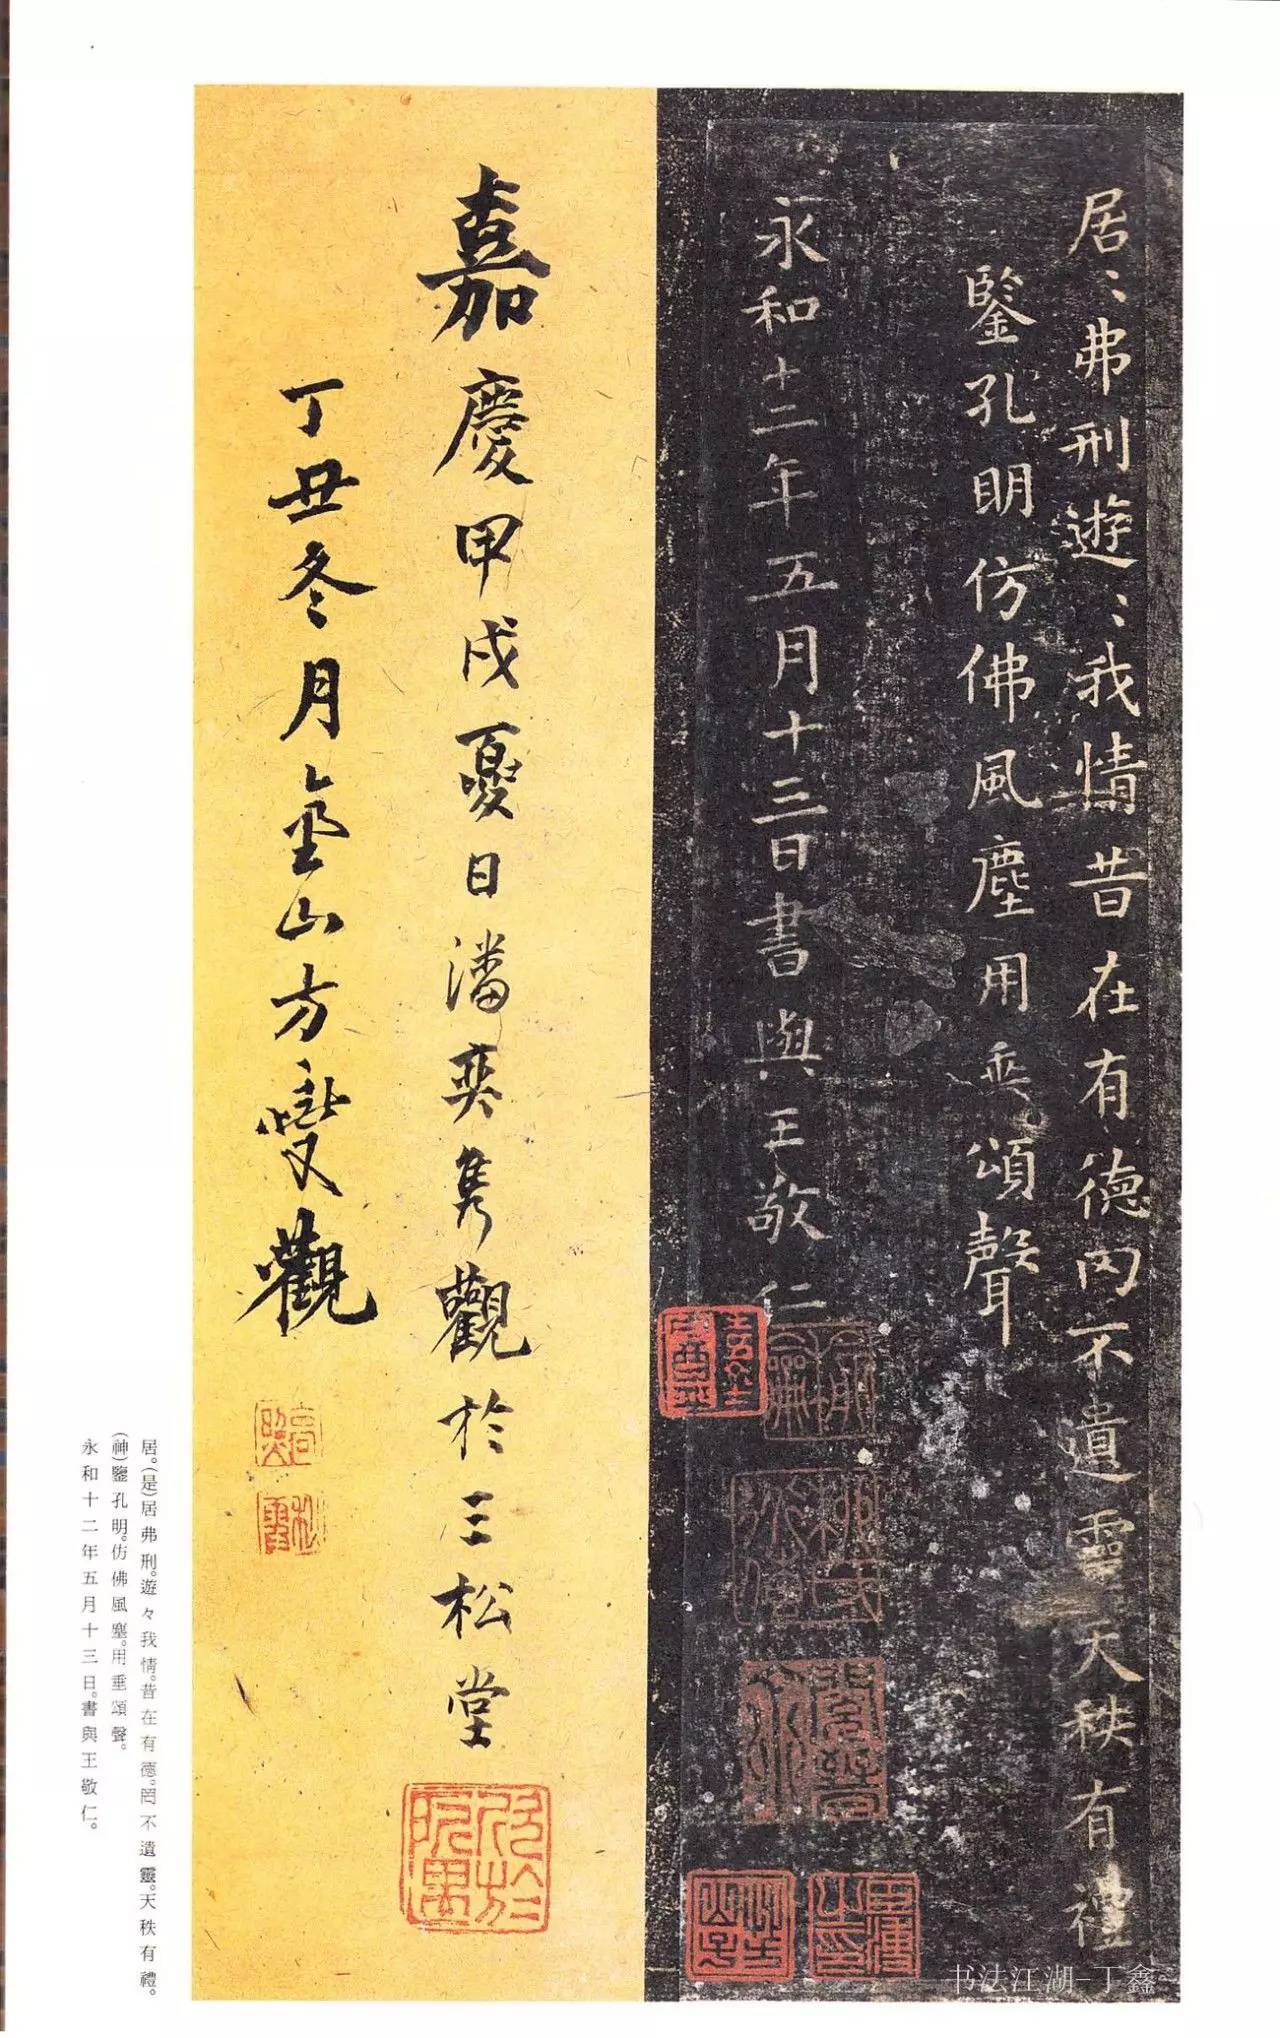 居〻弗刑遊〻我情昔在有德罔不遺靈天秩有禮
鑒孔明仿佛風塵用垂頌聲
永和十二年五月十三日書與王敬仁
嘉慶甲戌夏日潘奕雋觀於三松堂
丁丑冬月金山方燮觀
居。(是)居弗刑。遊々我情。昔在有德。罔不遺靈。天秩有禮。
(神)鑒孔明。仿佛風塵。用垂頌聲。
永和十二年五月十三日。書與王敬仁。
书法江湖-丁鑫